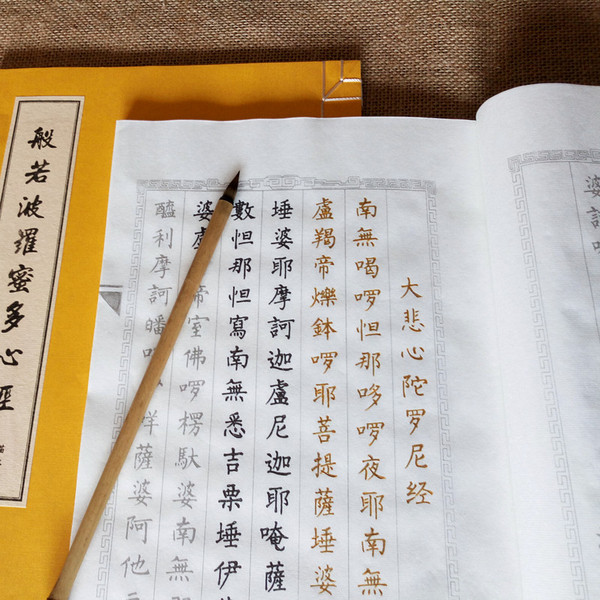 婆訶
大悲心陀罗尼经
南無喝啰怛那哆啰夜耶南無
盧羯帝爍鉢啰耶菩提薩埵婆
埵婆耶摩訶迦盧尼迦耶唵薩
數怛那怛寫南無悉吉栗埵伊
婆盧帝室佛啰楞馱婆南無
醯利摩訶皤咩薩婆阿他
般若波羅蜜多心經